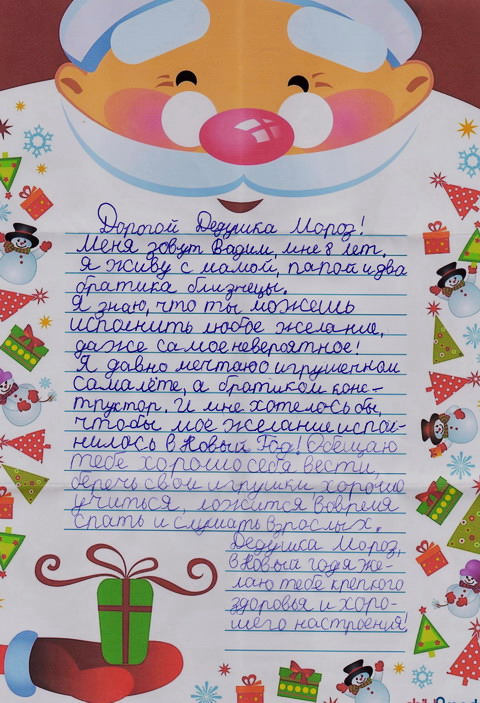 Дорогой Дедушка Мороз!
Меня зовут Вадим, мне 8 лет.
Я живу с мамой, папой и два
братика близнецы.
Я знаю, что ты можешь
исполнить любое желание,
даже самое невероятное!
Я давно мечтаю о игрушечном
самалёте, а братиком конс-
труктор. И мне хотелось бы,
чтобы мое желание испол-
нилось в Новый Год! Обещаю
тебе хорошо себа вести,
беречь свои игрушки хорошо
учиться, ложится вовремя
спать и слушать взрослых.
Дедушка Мороз,
в Новый год я же-
лаю тебе крепкого
здоровья и хоро-
шего настроения!